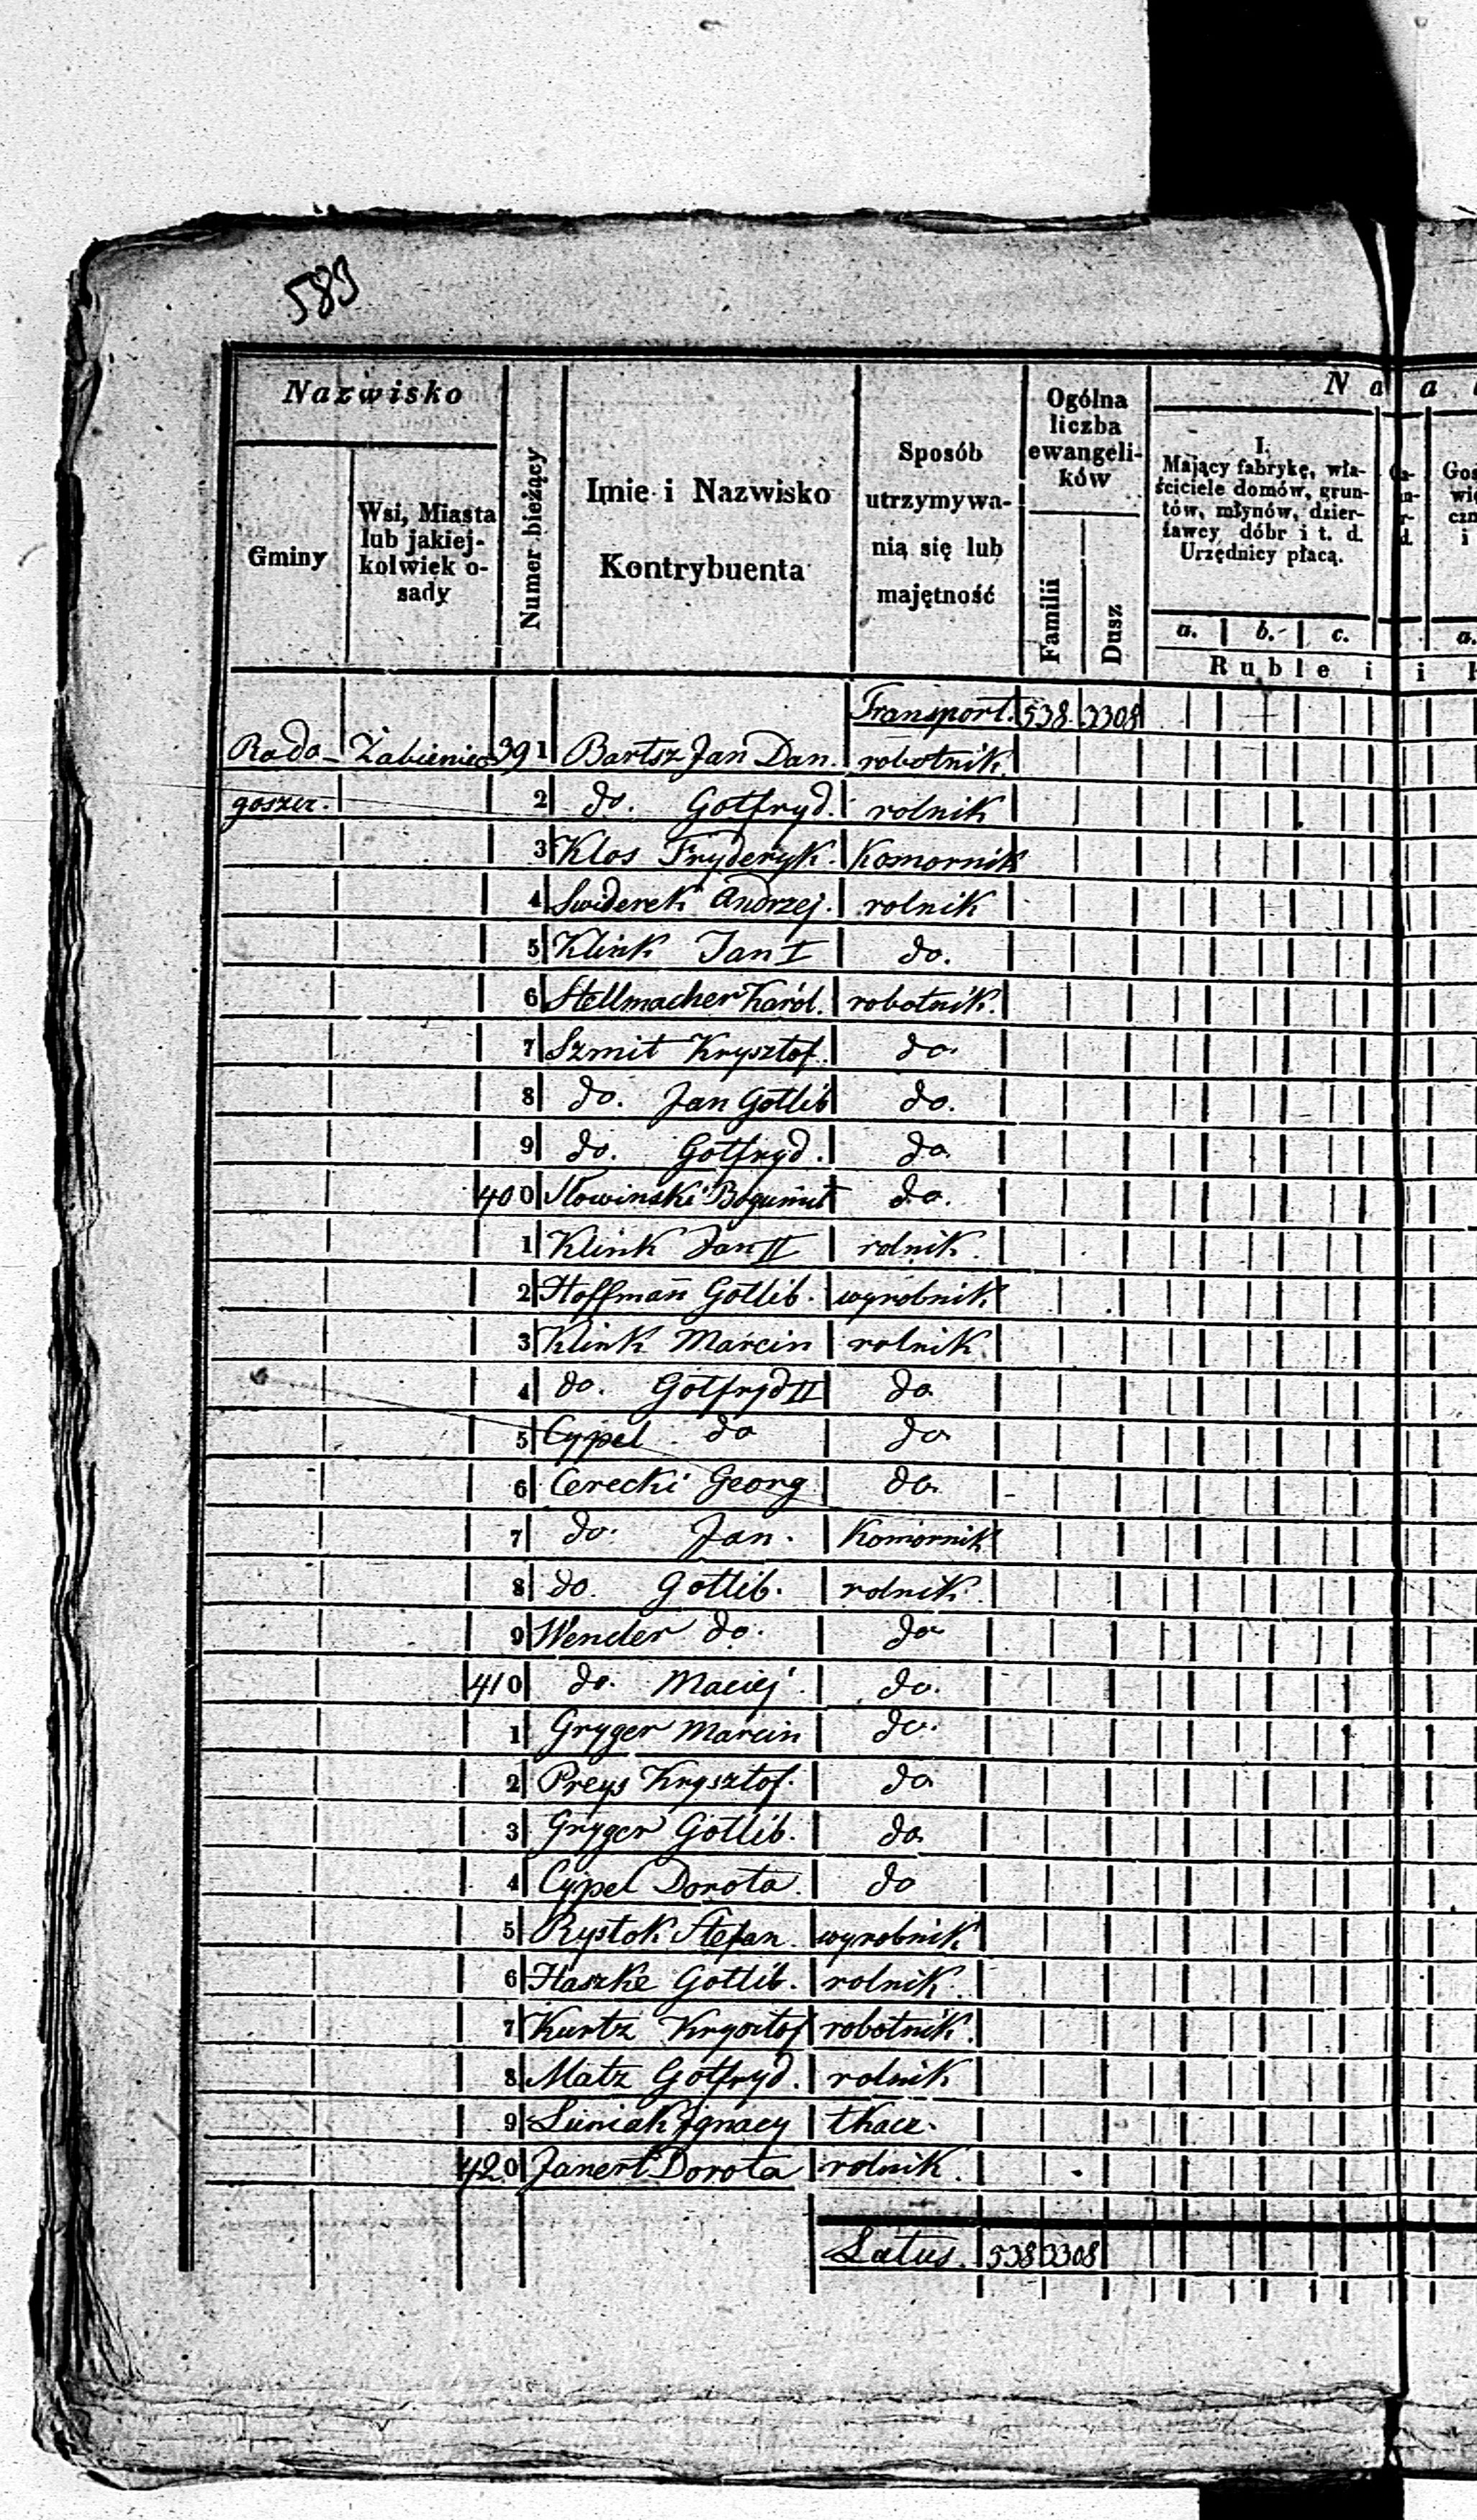 589
Nazwisko
Gminy
Wsi, Miasta
lub jakiej-
kolwiek o-
sady
Numer bieżący
Imie i Nazwisko
Kontrybuenta
Sposób
utrzymywa-
nia się lub
majętność
Ogólna
liczba
ewangeli-
ków
Familii
Dusz
N a a
I.
Mający fabrykę, wła-
ściciele domów, grun-
tów, młynów, dzier-
żawcy dóbr i t. d.
Urzędnicy płacą.
a. b. c. a.
Ruble i i
Transport. 538 3308
Rado- Żabieniec 391 Bartsz Jan Dan. robotnik
goszcz. 2 do. Gotfryd. rolnik
3 Klos Fryderyk. Komornik
4 Swiderek Andrzej. rolnik
5 Klink Jan I do.
6 Stellmacher Karol. robotnik.
7 Szmit Krysztof. do.
8 do. Jan Gotlib do.
9 do. Gotfryd. do
400 Słowinski Bogumił do.
1 Klink Jan II rolnik.
2 Hoffmañ Gotlib. wyrobnik
3 Klink Marcin rolnik
4 do. Gotfryd II do
5 Cypel do do
6 Cerecki Georg do.
7 do. Jan. Komornik
8 do. Gotlib. rolnik.
9 Wender do. do
410 do. Maciej. do.
1 Gryger Marcin do.
2 Preys Krysztof. do
3 Gryger Gotlib. do
4 Cypel Dorota. do
5 Rystok Stefan. wyrobnik
6 Haszke Gotlib. rolnik.
7 Kurtz Krysztof robotnik.
8 Matz Gotfryd. rolnik
9 Luniak Ignacy tkacz.
420 Janert Dorota rolnik.
Latus. 538 3308